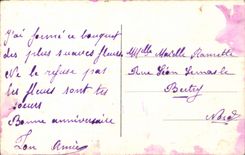 j'ai formé ce bouquet
des plus suaves fleurs
Ne le refuse pas
les fleurs sont tes
sœurs
Bonne anniversaire
Ton Amie
Mlle Marelle
Rue Léon
Nord